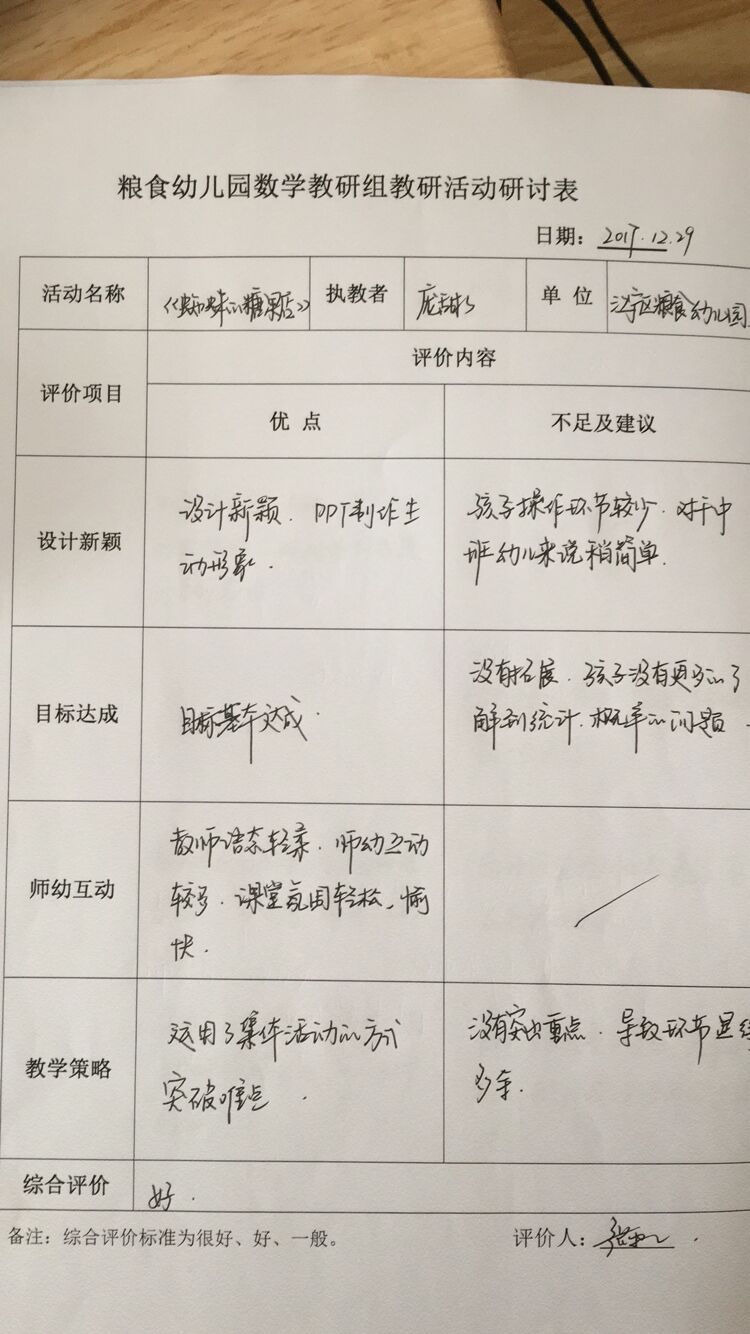 粮食幼儿园数学教研组教研活动研讨表
日期：2017.12.29
活动名称 执教者 单 位 江宁区粮食幼儿园
评价项目 评价内容
优 点 不足及建议
设计新颖
设计新颖．PPT制作生
动形象．
孩子操作环节较少．对于中
班幼儿来说稍简单．
目标达成
目标基本达成．
没有拓展．孩子没有更多的了
解到统计．概率的问题．
师幼互动
教师语态轻柔．师幼互动
较多．课堂氛围轻松、愉
快．
教学策略
运用了集体活动的方式
突破难点．
没有突出重点．导致环节显
多余．
综合评价 好．
备注：综合评价标准为很好、好、一般。 评价人：